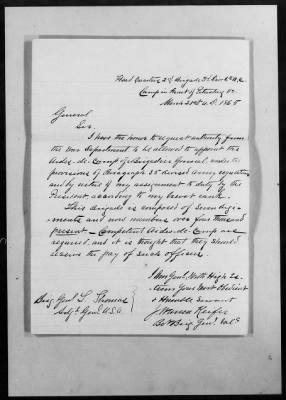 Head Quarters 2d Brigade 3d Div 6th A.C.
Camp in front of Petersburg Va.
March 21st A.D. 1865
General
Sir.
I have the honor to request authority from
the War Department to be allowed to appoint the
Aides-de-Camp of a Brigadier General, under the
provisions of Paragraph 35 revised Army regulations
and by virtue of my assignment to duty by the
President, according to my brevet rank.
This brigade is composed of seven Regi-
ments and now numbers over four thousand
present - Competent Aides-de-Camp are
required, and it is thought that they should
receive the pay of such officers.
I Am Genl. With High
Your Most Obedient
& Humble Servant
J Warren Keifer
Bvt Brig Genl. Vols
Brig Genl L. Thomas
Adjt Genl U.S.A.